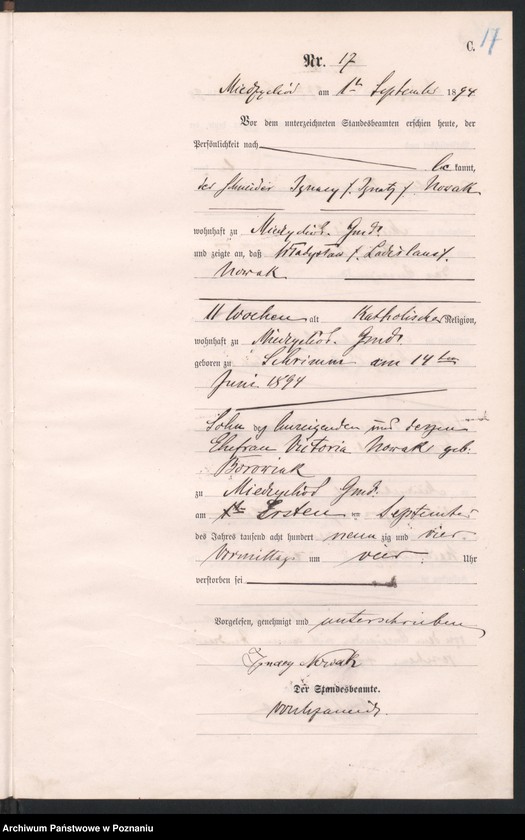 C. 17
Nr. 17
Miedzychód am 1ten September 1894
Vor dem unterzeichneten Standesbeamten erschien heute, der
Persönlichkeit nach
be kannt,
der Schneider Ignacy /. Ignatz /. Nowak
wohnhaft zu Miedzychód. Gmd.
und zeigte an, daß Władysław /. Ladislaus /.
Nowak
11 Wochen alt Katholischer Religion,
wohnhaft zu Miedzychód. Gmd.
geboren zu Schrimm am 14ten
Juni 1894
Sohn des Anzeigenden und dessen
Ehefrau Victoria Nowak geb:
Borowiak
zu Miedzychód Gmd.
am Ersten ten September
des Jahres tausend acht hundert neun zig und vier
Vormittags um vier Uhr
verstorben sei
Vorgelesen, genehmigt und unterschrieben
Ignacy Nowak
Der Standesbeamte.
Archiwum Państwowe w Poznaniu